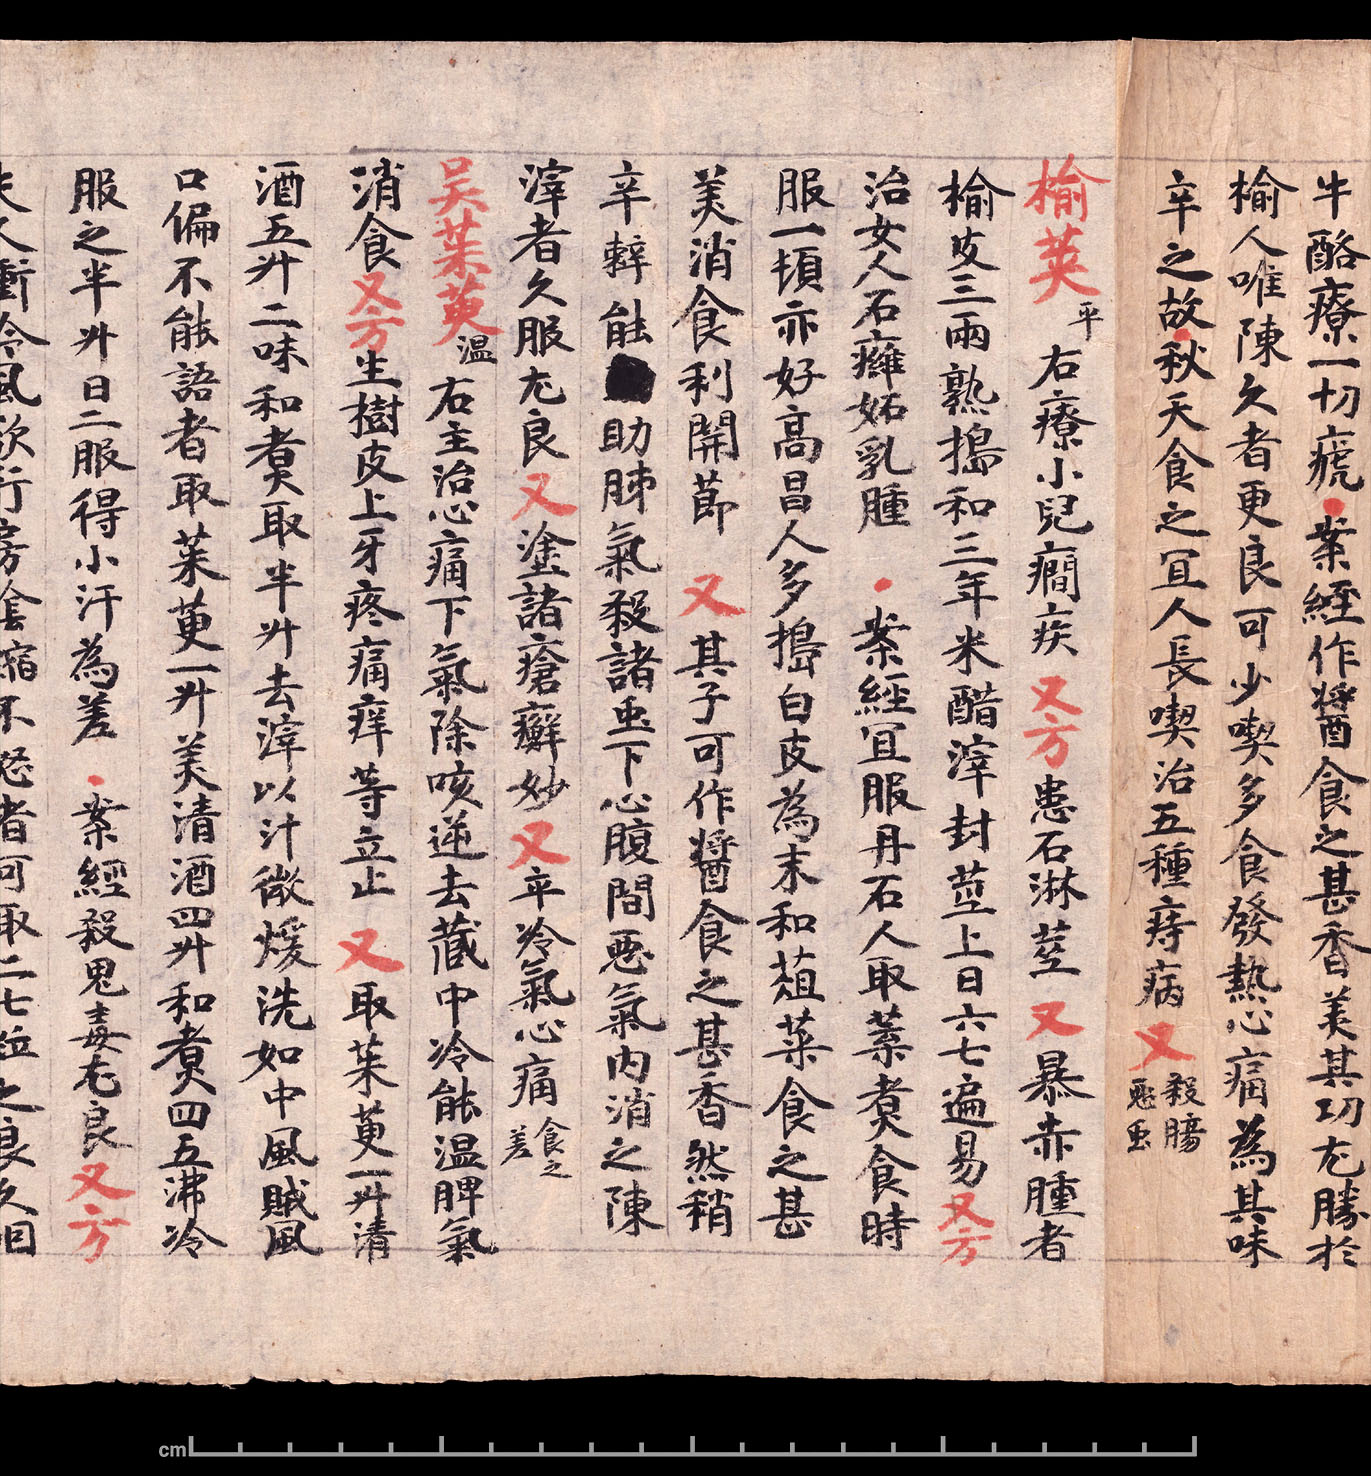 牛酪療一切瘡案經作醬食之甚香美其功尤勝於
榆人唯陳久者更良可少喫多食發熱心痛為其味
辛之故秋天食之冝人長喫治五種痔病又殺腸惡虫
榆莢平右療小兒癇疾又方患石淋莖又暴赤腫者
榆皮三兩熟搗和三年米醋滓封莖上日六七遍易又方
治女人石癰妬乳腫案經冝服丹石人取葉煮食時
服一頓亦好高昌人多搗白皮為末和葅菜食之甚
美消食利關節又其子可作醬食之甚香然稍
辛辣能助肺氣殺諸虫下心腹間惡氣內消之陳
滓者久服尤良又塗諸瘡癬妙又卒冷氣心痛食之差
吴茱萸温右主治心痛下氣除咳逆去藏中冷能温脾氣
消食又方生樹皮上牙疼痛痒等立止又取茱萸一升清
酒五升二味和煮取半升去滓以汁微煖洗如中風賊風
口偏不能語者取茱萸一升美清酒四升和煮四五沸冷
服之半升日二服得小汗為差案經殺鬼毒尤良又方
夫人衝冷風欲行房陰縮不怒者可取二七粒之良久咽